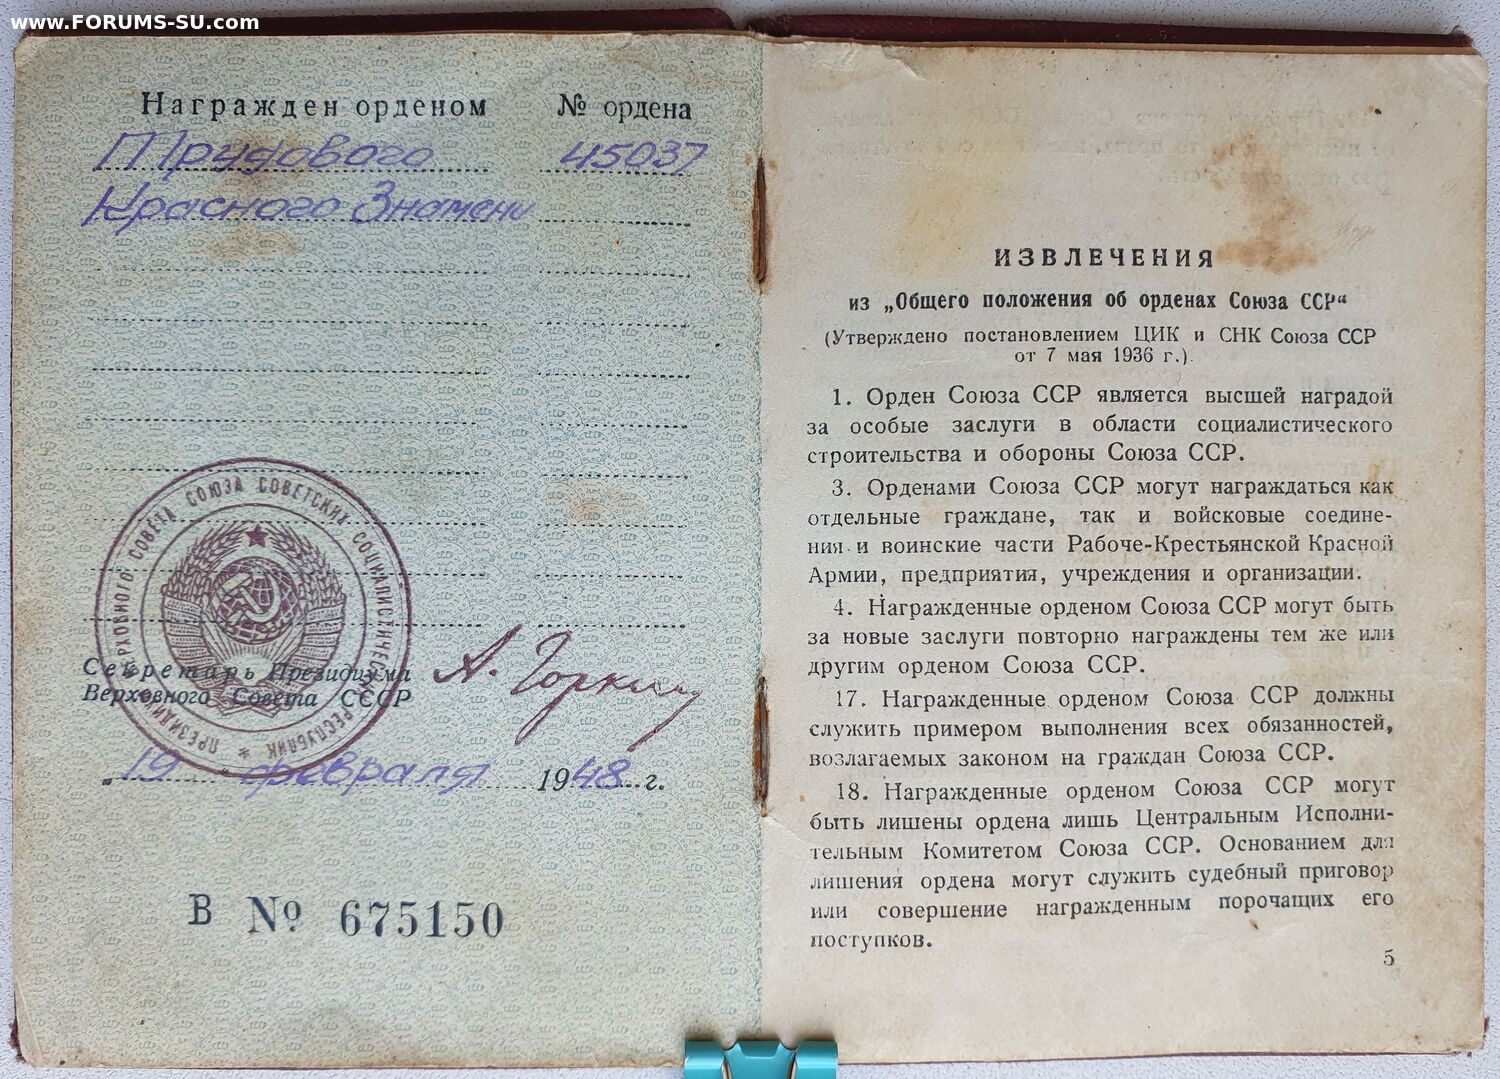 www.FORUMS-SU.com
Награжден орденом № ордена
Трудового 45037
Красного Знамени
ПРЕЗИДИУМ ВЕРХОВНОГО СОВЕТА СОЮЗА СОВЕТСКИХ СОЦИАЛИСТИЧЕСКИХ РЕСПУБЛИК
Секретарь Президиума
Верховного Совета СССР
А. Горкин
„19 " февраля 1948 г.
В № 675150
ИЗВЛЕЧЕНИЯ
из „Общего положения об орденах Союза ССР“
(Утверждено постановлением ЦИК и СНК Союза ССР
от 7 мая 1936 г.).
1. Орден Союза ССР является высшей наградой
за особые заслуги в области социалистического
строительства и обороны Союза ССР.
3. Орденами Союза ССР могут награждаться как
отдельные граждане, так и войсковые соедине-
ния и воинские части Рабоче-Крестьянской Красной
Армии, предприятия, учреждения и организации.
4. Награжденные орденом Союза ССР могут быть
за новые заслуги повторно награждены тем же или
другим орденом Союза ССР.
17. Награжденные орденом Союза ССР должны
служить примером выполнения всех обязанностей,
возлагаемых законом на граждан Союза ССР.
18. Награжденные орденом Союза ССР могут
быть лишены ордена лишь Центральным Исполни-
тельным Комитетом Союза ССР. Основанием для
лишения ордена могут служить судебный приговор
или совершение награжденным порочащих его
поступков.
5